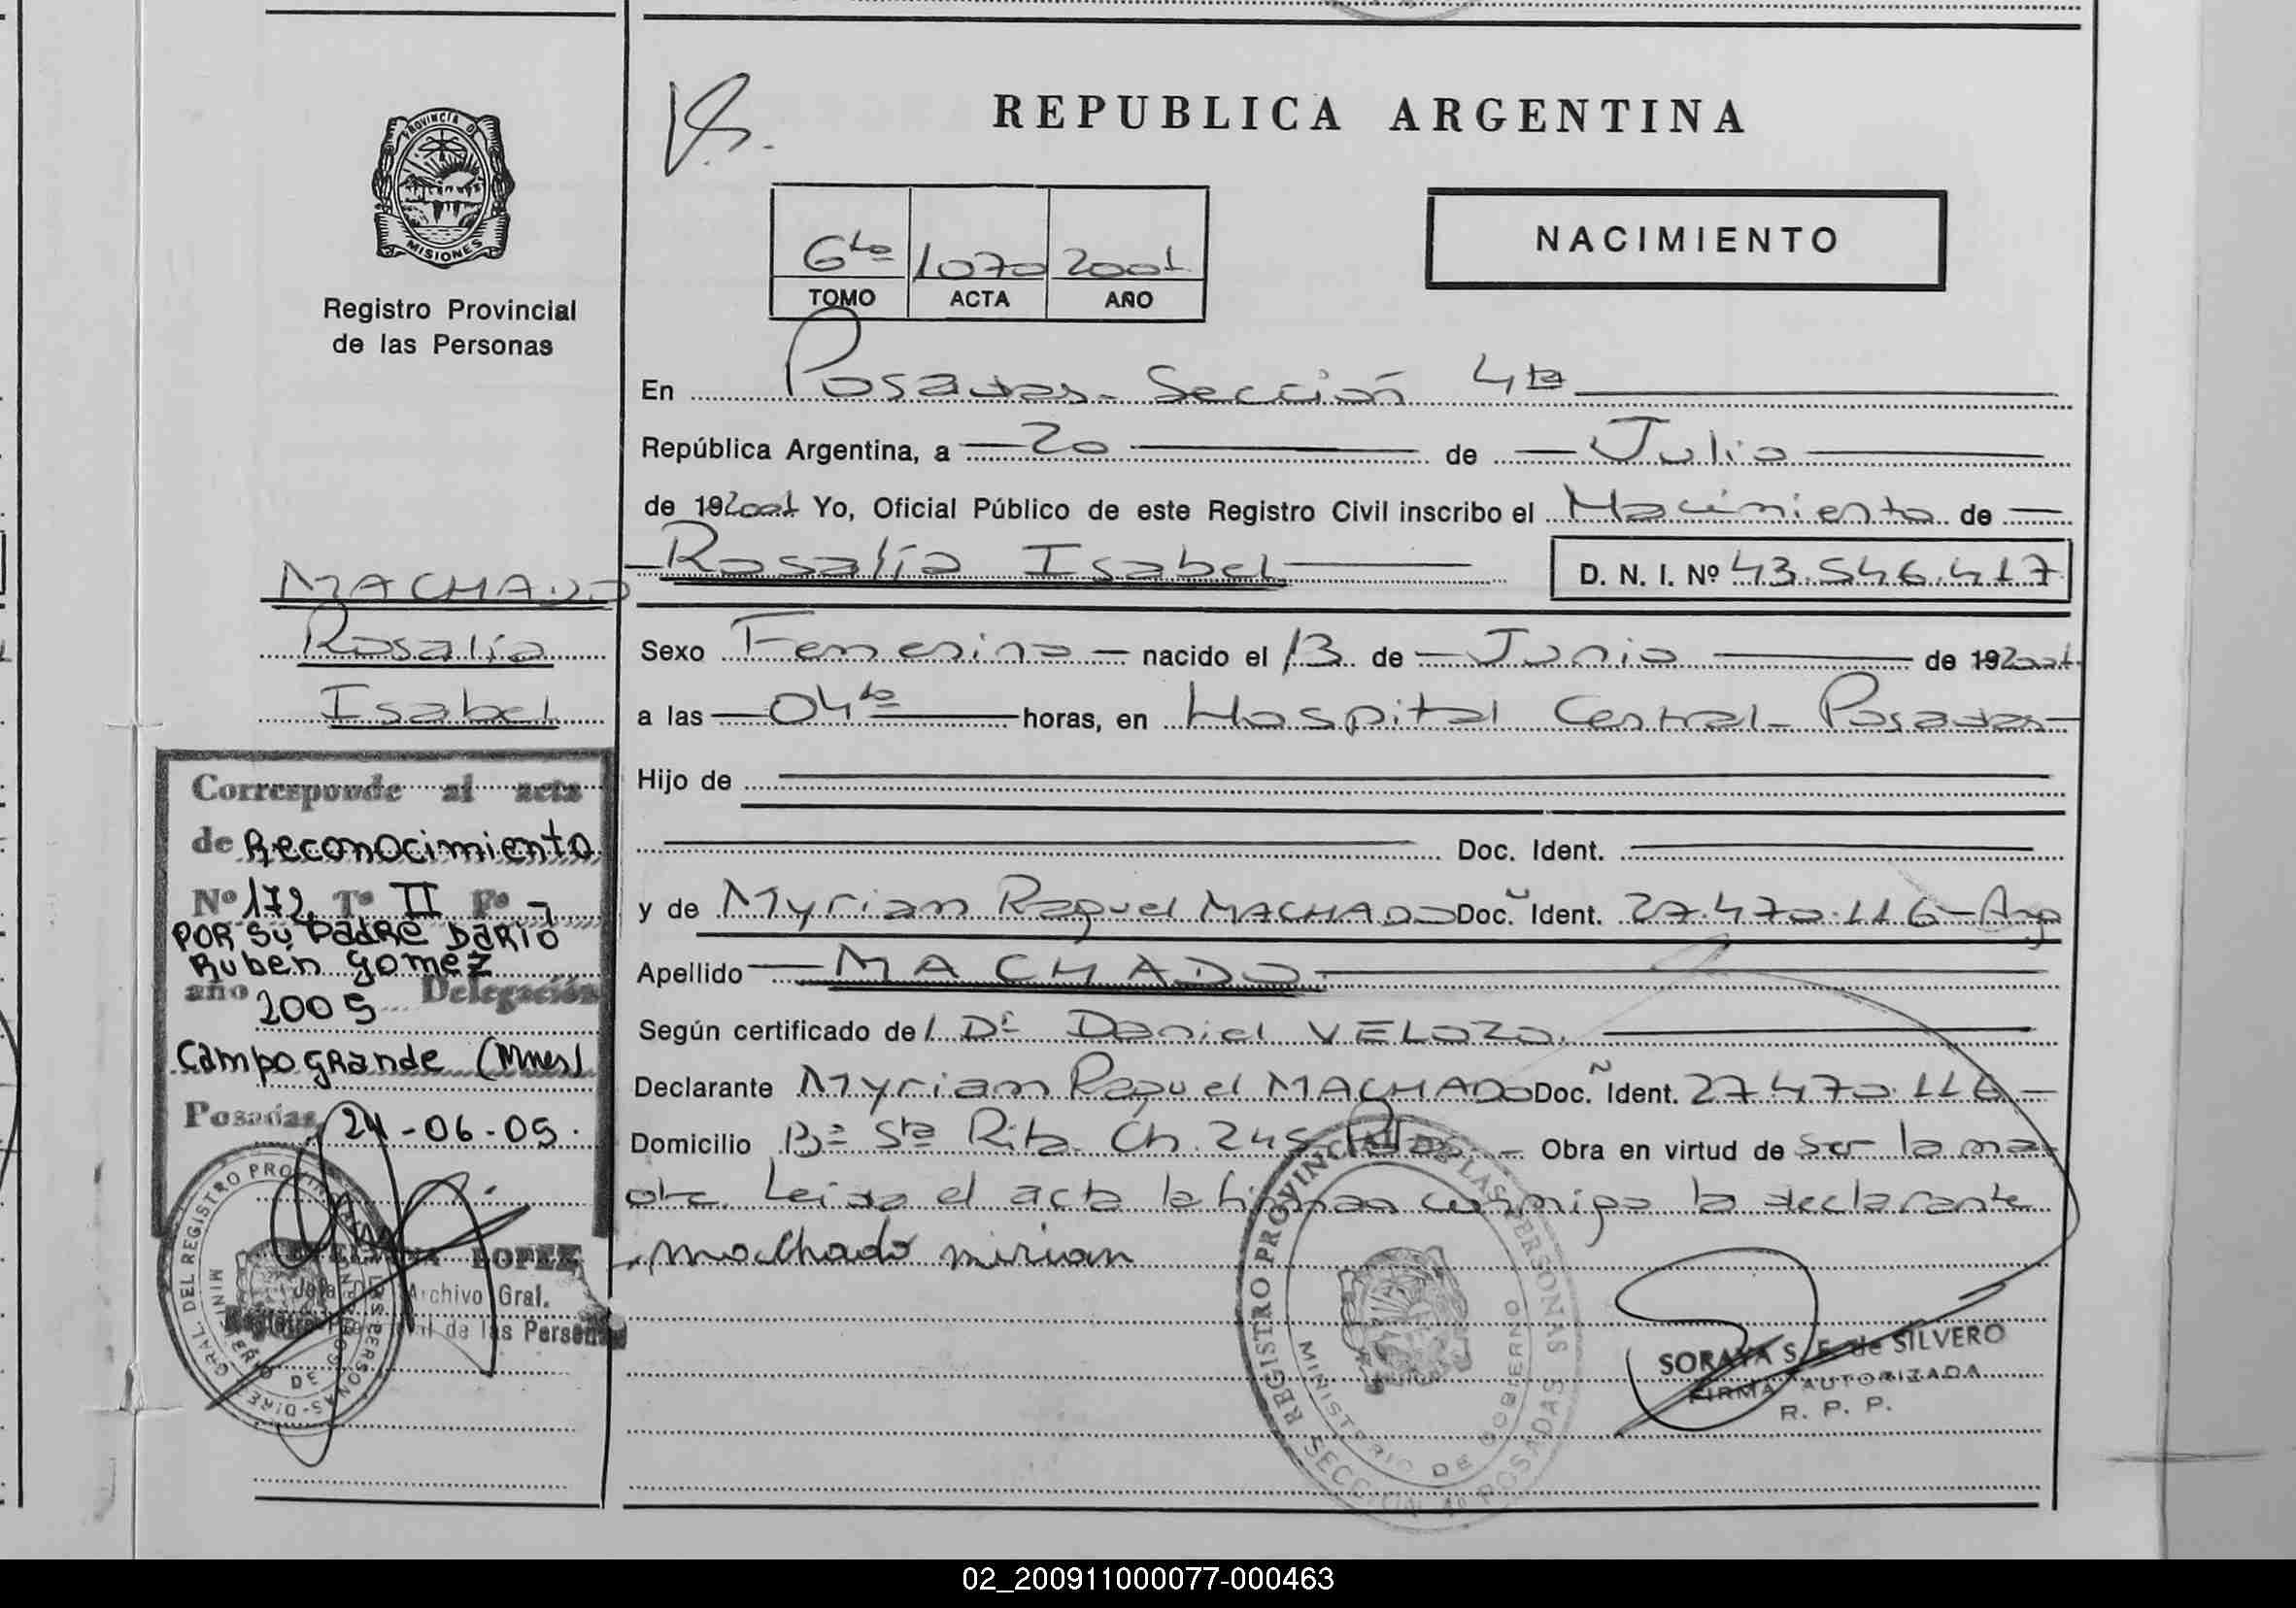 REPUBLICA ARGENTINA
PROVINCIA DE
MISIONES
Registro Provincial
de las Personas
6to 1070 2001
TOMO ACTA AÑO
NACIMIENTO
En Posadas- Sección 4ta
República Argentina, a 20 de Julio
de 192001 Yo, Oficial Público de este Registro Civil inscribo el Nacimiento de
Rosalía Isabel D. N. I. Nº 43.546.417
MACHADO
Rosalía
Isabel
Sexo Femenino nacido el 13 de Junio de 192001
a las 04 horas, en Hospital Central- Posadas
Hijo de
Doc. Ident.
y de Myrian Raquel MACHADO Doc. Ident. 27.470.116-Arg
Apellido MACHADO
Según certificado del Dr Daniel VELOZO.
Declarante Myrian Raquel MACHADO Doc. Ident. 27.470.116
Domicilio Bº Sta Rita Ch. 245 Obra en virtud de ser la ma
dre. Leida el acta la firman conmigo la declarante
machado mirian
Corresponde al acta
de Reconocimiento
Nº 172 Tº II Fº
POR SU PADRE DARIO
Ruben gomez
año 2005 Delegación
Campo grande (Mnes)
Posadas, 24-06-05.
LOPEZ
Archivo Gral.
de las Personas
GRAL. DEL REGISTRO PROVINCIAL DE LAS PERSONAS-DIRE
MINISTERIO DE GOBIERNO
REGISTRO PROVINCIAL DE LAS PERSONAS
MINISTERIO DE GOBIERNO
SECCION 4º POSADAS
SORAYA S. F. de SILVERO
FIRMA AUTORIZADA
R. P. P.
02_200911000077-000463